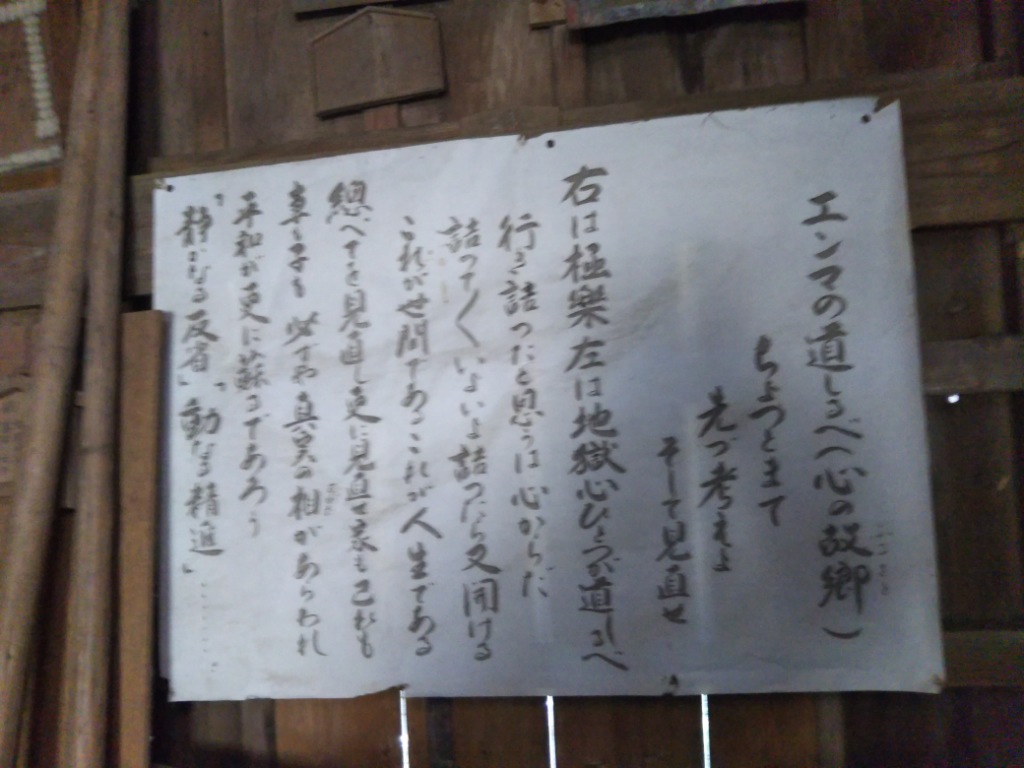 エンマの道しるべ(心の故郷)
ふるさと
ちよつとまて
先づ考えよ
そして見直せ
右は極樂左は地獄心ひとつが道しるべ
行き詰つたと思うは心からだ
詰つて〱いよいよ詰つたら又開ける
これが世間であるこれが人生である
總べてを見直し更に見直せ家も己れも
事々も必ずや真実の相があらわれ
すがた
平和が更に蘇るであろう
「静かなる反省」「動なる精進」………